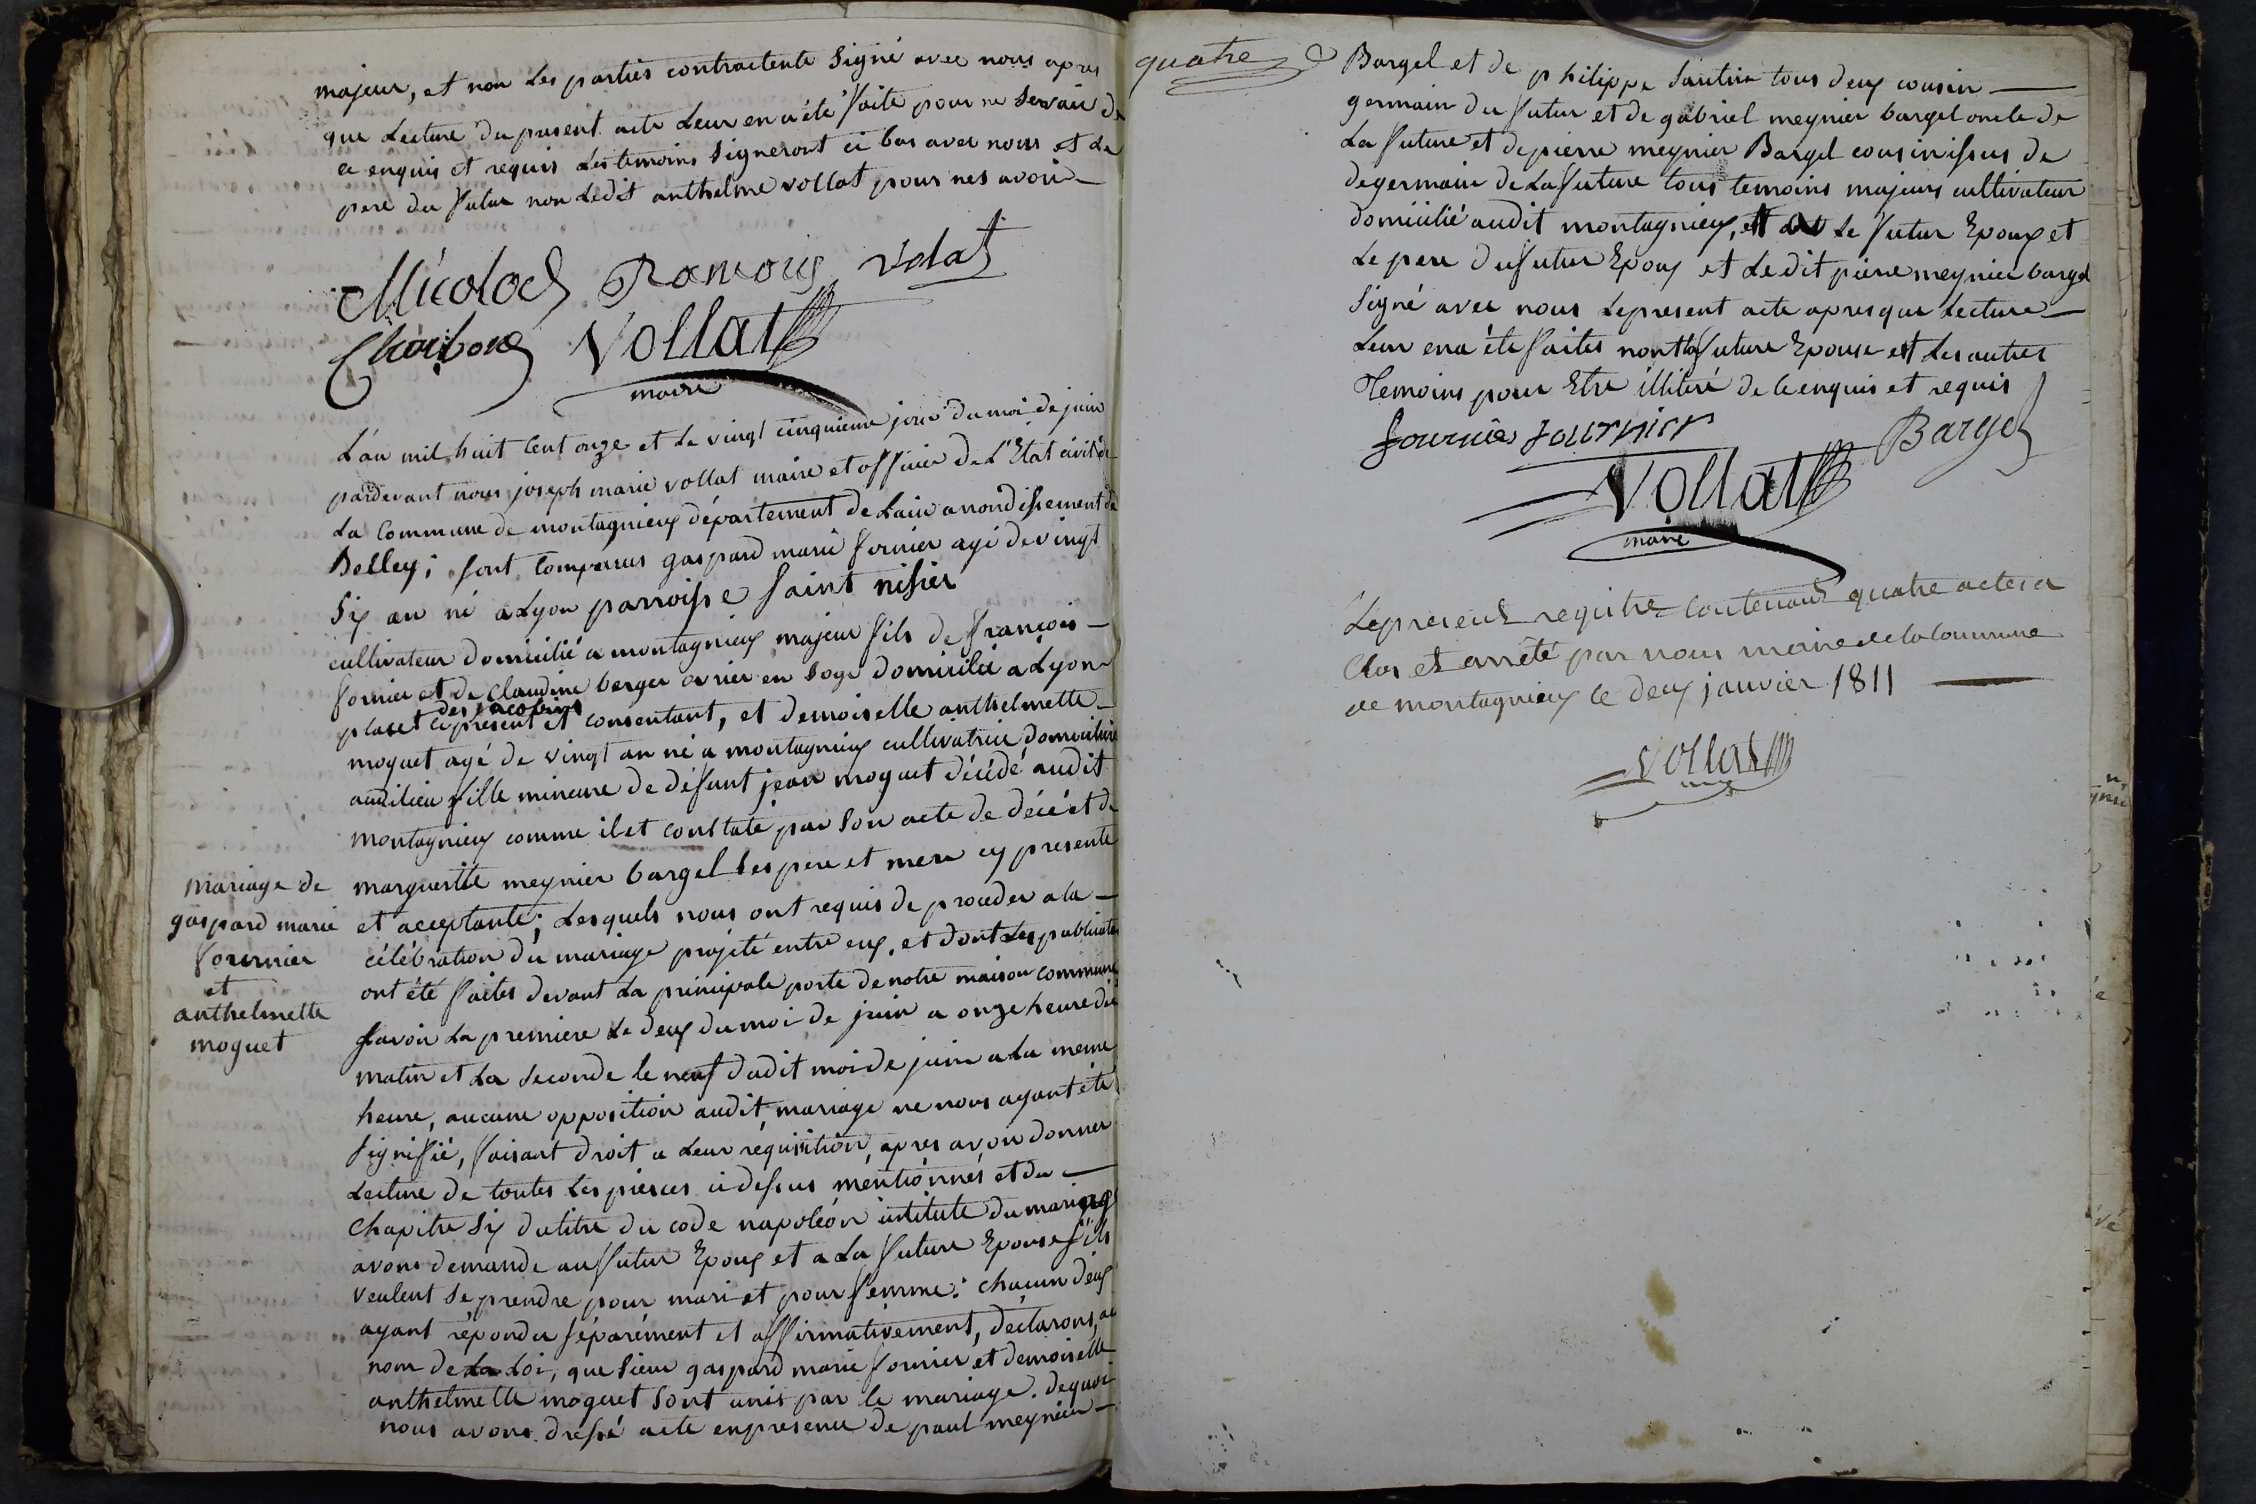 majeur, et non les parties contractente signé avec nous apres
que lecture du present acte leur en a été faite pour ne servoir de
ce enquis et requis les temoins signeront ci bas avec nous et le
pere du futur non ledit anthelme vollat pour nes avoir
Micolod François volat
Charbon Vollat
maire
L'an mil huit cent onze et le vingt cinquieme jour du moi de juin
pardevant nous joseph marie vollat maire et officier de L'Etat civil de
la Commune de montagnieux département de Lain arrondissement de
Belley; sont comparus gaspard marie fornier agé de vingt
six an né a Lyon parroisse saint nisier
cultivateur domicilié a montagnieux majeur fils de françois
fornier et de claudine berger ovrier en soye domicilié a Lyon
des jacobins
place ci present et consentant, et demoiselle anthelmette
moguet agé de vingt an né a montagnieux cultivatrice domiciliée
audilieu fille mineure de défunt jean moguet décédé audit
montagnieux comme il et constaté par son acte de décé et de
marguerite meynier bargel ses pere et mere cy presente
et acceptante; Lesquels nous ont requis de proceder a la
célébration du mariage projeté entre eux, et dont les publications
ont été faites devant la principale porte de notre maison commune
savoir la premiere le deux du moi de juin a onze heure du
matin et la seconde le neuf dudit moi de juin a la meme
heure, aucune opposition audit mariage ne nous ayant été
signifié, faisant droit a leur réquisition, apres avoir donner
lecture de toutes les pieces ci dessus mentionnés et du
chapitre six du titre du code napoléon intitulé du mariage
avons demande au futur Epoux et a La future Epouse s'ils
veulent se prendre pour mari et pour femme: chacun deux
ayant répondu séparément et affirmativement, déclarons, au
nom de la Loi, que sieur gaspard marie fornier et demoiselle
anthelmette moguet sont unis par le mariage. dequoi
nous avons dressé acte enpresence de paul meynier
mariage de
gaspard marie
fournier
et
anthelmette
moguet
quatre
Bargel et de philippe tous deux cousin
germain du futur et de gabriel meynier bargel oncle de
La future et de pierre meynier Bargel cousin issus de
de germain de La future tous temoins majeurs cultivateur
domicilié audit montagnieux, et le futur Epoux et
Le pere du futur Epoux et Ledit pierre meynier bargel
signé avec nous Le present acte apres que Lecture
Leur en a été faites non la future Epouse et Les autres
Temoins pour Etre illitéré de ce enquis et requis
fournier fournier Bargel
Vollat
maire
Le present registre contenant quatre actes a
Clos et arreté par nous maire de la Commune
de montagnieux le deux janvier 1811
Vollat